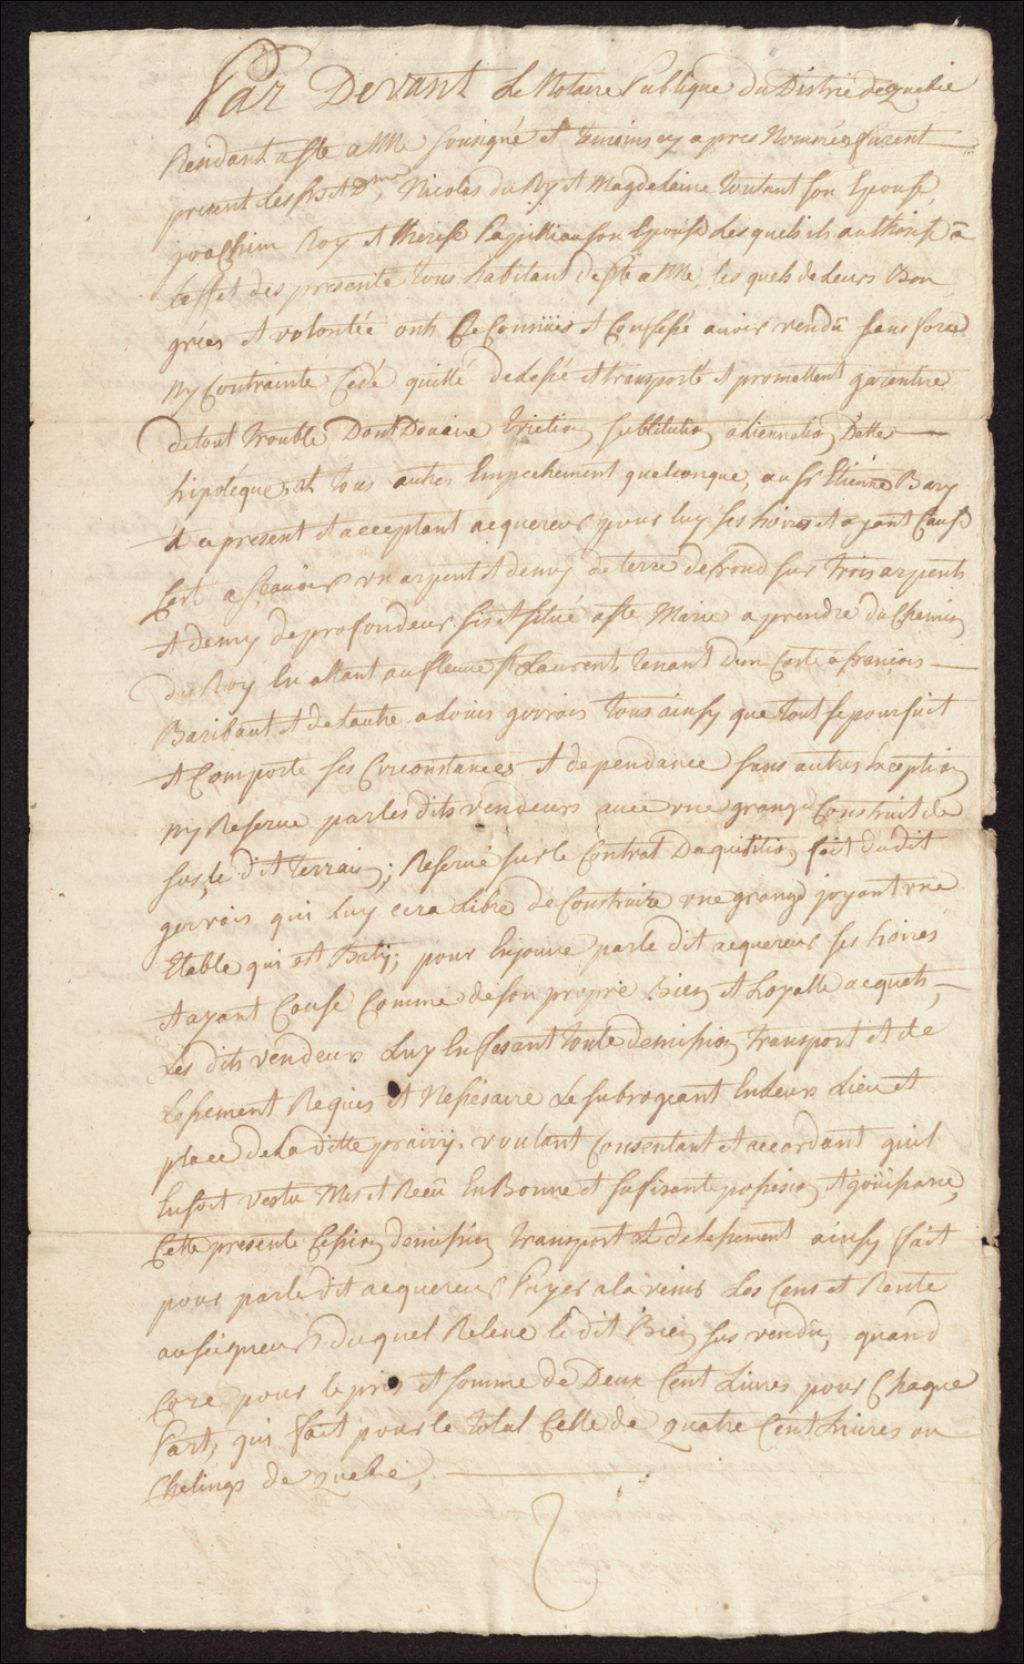 Par Devant Le Notaire Publique du Distric de quebec
Residant a Ste anne sousigné et temoins cy apres Nommées furent
present Les Sr et Dme, Nicolas du Roy et Magdelaine toutant son Epouse,
joachim Roy et therese Papillau son Epouse Lesquels ils authorise a
Leffet des presente tous habitant de Ste anne, les quels de leurs Bon
grées et volontée onts Reconnües et Confessé avoir vendû sans force
Ny Contrainte Cedé quitté delessé et transporté et promettent garentire
de tout trouble Dont Douaire Eviction substitution alliennation Datte
hipotéques et tous autres Empechement quelconque, au Sr Etiénne Bary
a ce present et acceptant acquereur pour luy ses hoires et ayant Cause
Cest a sçavoir un arpent et demy de terre de frond sur trois arpents
et demy de profondeur sis et situé a Ste Marie a prendre du Chemin
du Roy En allant au fleuve St Laurent, tenant d'un Coste a francois
Baribaut et de Lautre a Louis gervais tous ainsy que tout se poursuit
et Comporte ses Circonstances et dependance sans autres Exception
ny Reserve par les dits vendeurs avec une grange Construit de
sus le dit terrain; Reservé sur le Contrat Daquisition fait du dit
gervais qui luy cera Libre de Construire une grange joyant une
Etable qui est Baty; pour En jouire par le dit acquereur ses hoires
et ayant Cause Comme de son propre Bien et Loyalle acquets,
Les dits vendeurs Luy En fesant toute demission transport et de
Lessement Requis et Nessesaire Le subrogeant En Leurs Lieu et
place de La ditte prairy. voulant Consentant et accordant quil
En soit vestu Mis et Recû En Bonne et sufisante possesion et goüissance,
Cette presente Cession demission transport et delessement ainsy fait
pour par le dit acquereur Payer a lavenir Les Cens et Rente
au seigneur duquel Releve le dit Bien sus vendû, quand
Core pour le pris et somme de Deux Cent Livres pour Chaque
Part, qui fait pour le total Celle de quatre Cent Livres ou
Chelings de quebec,